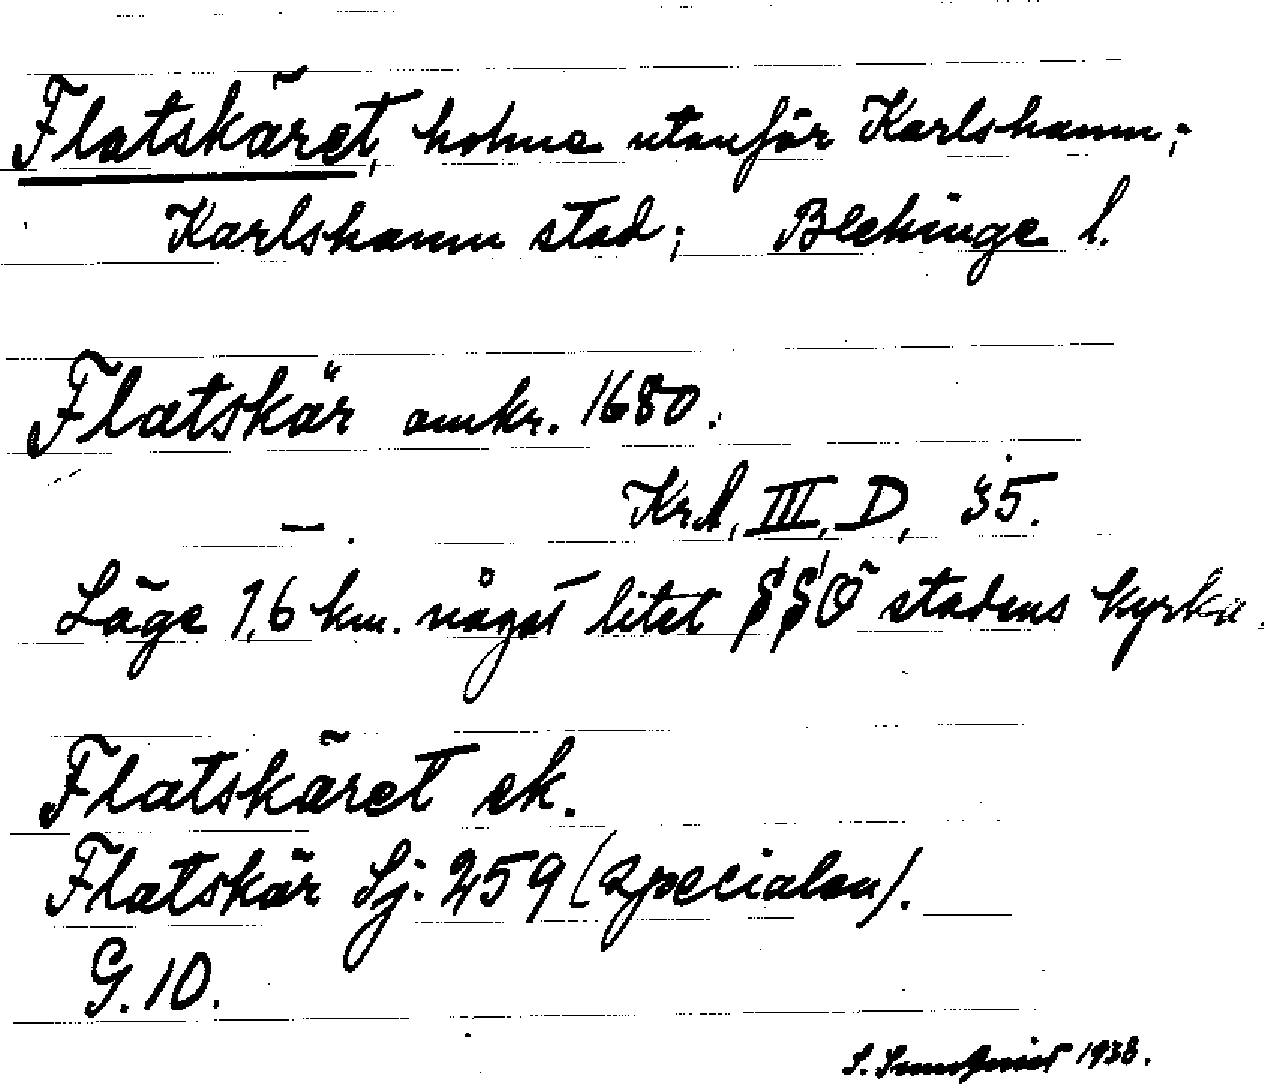 Flatskäret, holme utanför Karlshamn;
Karlshamn stad; Blekinge l.
Flatskär omkr. 1680.
—. KrA, III, D, 35.
Läge 1,6 km. något litet SSÖ stadens kyrka.
Flatskäret ek.
Flatskär Sj. 259 (specialen).
G. 10.
S. 1938.